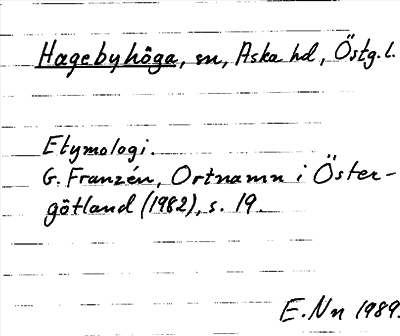 Hagebyhöga, sn, Aska hd, Östg.l.
Etymologi.
G. Franzén, Ortnamn i Öster-
götland (1982), s. 19.
E.Nn 1989.